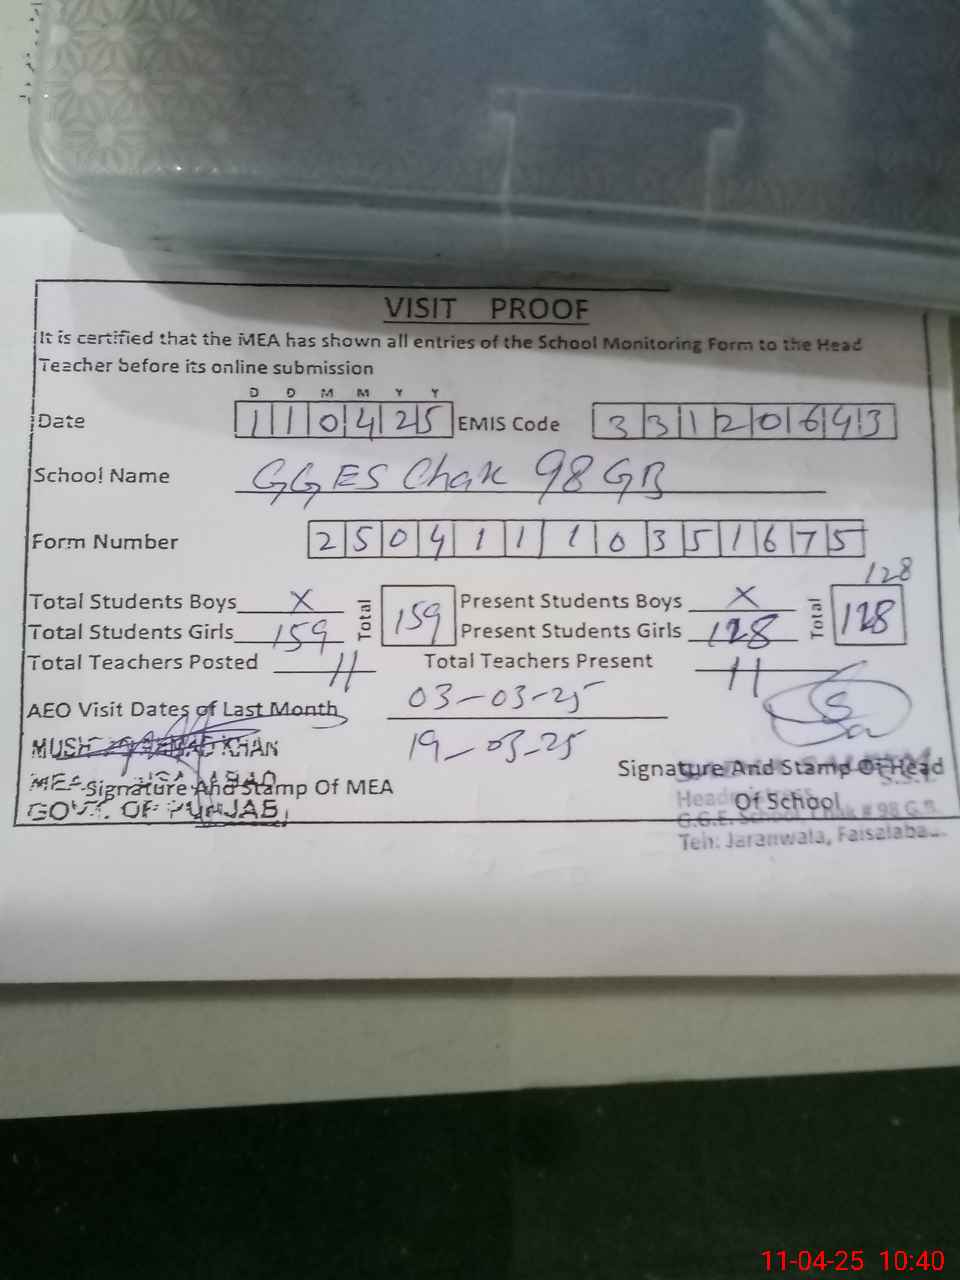 VISIT PROOF
It is certified that the MEA has shown all entries of the School Monitoring Form to the Head
Teacher before its online submission
D D M M Y Y
Date 110425 EMIS Code 33120643
School Name GGES Chak 98 GB
Form Number 25041110351675
128
Total Students Boys X Total 159 Present Students Boys X Total 128
Total Students Girls 159 Present Students Girls 128
Total Teachers Posted 11 Total Teachers Present 11
AEO Visit Dates of Last Month 03-03-25
KHAN 19-03-25
MEA
Signature And Stamp Of MEA Signature And Stamp Of Head
Of School
GOVT. OF PUNJAB
G.G.E. School, Chak # 98 G.B.
Teh: Jaranwala,
11-04-25 10:40